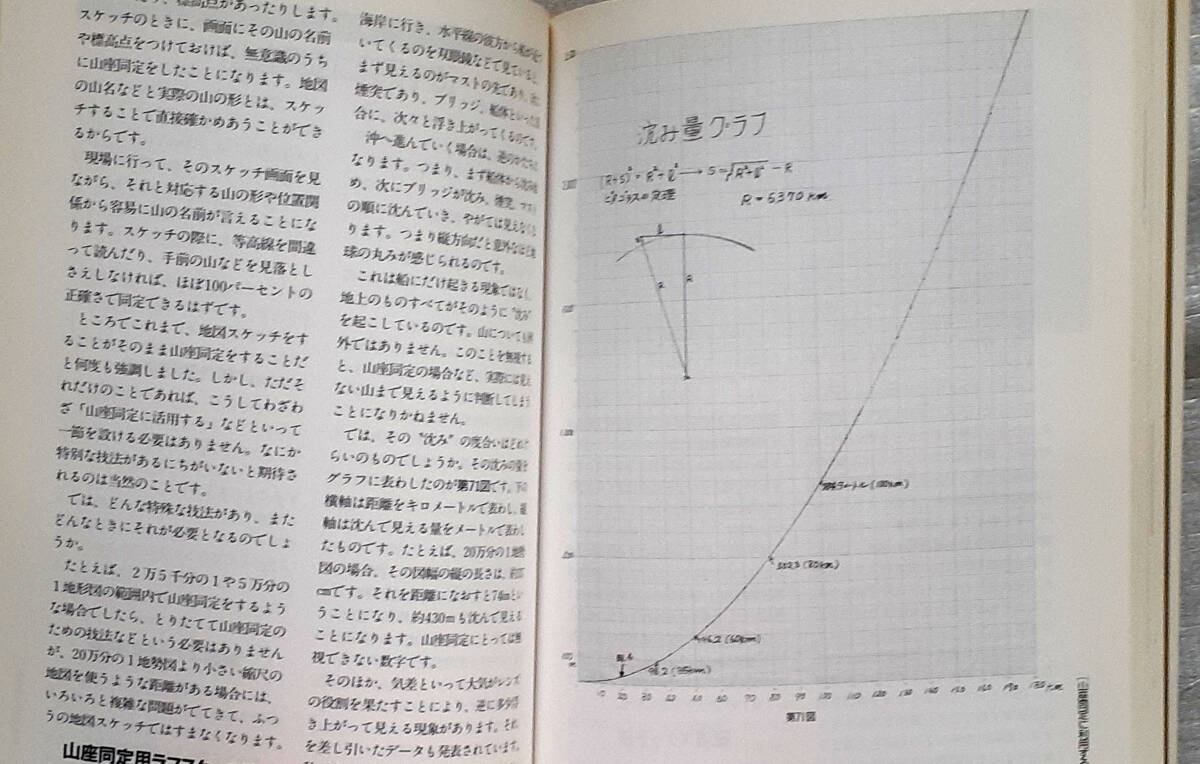 標高点があったりします。
スケッチのときに、画面にその山の名前
や標高点をつけておけば、無意識のうち
に山座同定をしたことになります。地図
の山名などと実際の山の形とは、スケッ
チすることで直接確かめあうことができ
るからです。
現場に行って、そのスケッチ画面を見
ながら、それと対応する山の形や位置関
係から容易に山の名前が言えることにな
ります。スケッチの際に、等高線を間違
って読んだり、手前の山などを見落とし
さえしなければ、ほぼ100パーセントの
正確さで同定できるはずです。
ところでこれまで、地図スケッチをす
ることがそのまま山座同定をすることだ
と何度も強調しました。しかし、ただそ
れだけのことであれば、こうしてわざわ
ざ「山座同定に活用する」などといって
一節を設ける必要はありません。なにか
特別な技法があるにちがいないと期待さ
れるのは当然のことです。
では、どんな特殊な技法があり、また
どんなときにそれが必要となるのでしょ
うか。
たとえば、2万5千分の1や5万分の
1地形図の範囲内で山座同定をするよう
な場合でしたら、とりたてて山座同定の
ための技法などという必要はありません
が、20万分の1地勢図より小さい縮尺の
地図を使うような距離がある場合には、
いろいろと複雑な問題がでてきて、ふつ
うの地図スケッチではすまなくなります。
山座同定用ラフスケ
海岸に行き、水平線の彼方から船が近づ
いてくるのを双眼鏡などで見ていると、
まず見えるのがマストの先であり、次に
煙突であり、ブリッジ、船体といった具
合に、次々と浮き上がってくるのです。
沖へ進んでいく場合は、逆のかたちに
なります。つまり、まず船体から沈み始
め、次にブリッジが沈み、煙突、マスト
の順に沈んでいき、やがては見えなくな
ります。つまり縦方向だと意外なほど地
球の丸みが感じられるのです。
これは船にだけ起きる現象ではなく、
地上のものすべてがそのように〝沈み〟
を起こしているのです。山についても例
外ではありません。このことを無視する
と、山座同定の場合など、実際には見え
ない山まで見えるように判断してしまう
ことになりかねません。
では、その〝沈み〟の度合いはどれく
らいのものでしょうか。その沈みの量を
グラフに表わしたのが第71図です。下の
横軸は距離をキロメートルで表わし、縦
軸は沈んで見える量をメートルで表わし
たものです。たとえば、20万分の1地勢
図の場合、その図幅の縦の長さは、約37
cmです。それを距離になおすと74kmとい
うことになり、約430mも沈んで見える
ことになります。山座同定にとっては無
視できない数字です。
そのほか、気差といって大気がレンズ
の役割を果たすことにより、逆に多少浮
き上がって見える現象があります。それ
を差し引いたデータも発表されています。
沈み量グラフ
(R+S)²=R²+ℓ² → S=√R²+ℓ² − R
ピタゴラスの定理
R=6370 km
ℓ
R
R
(100km)
(80km)
(50km)
96.2 (35km)
10 20 30 40 50 60 70 80 90 100 110 120 130 140 150 160 170 180 km
第71図